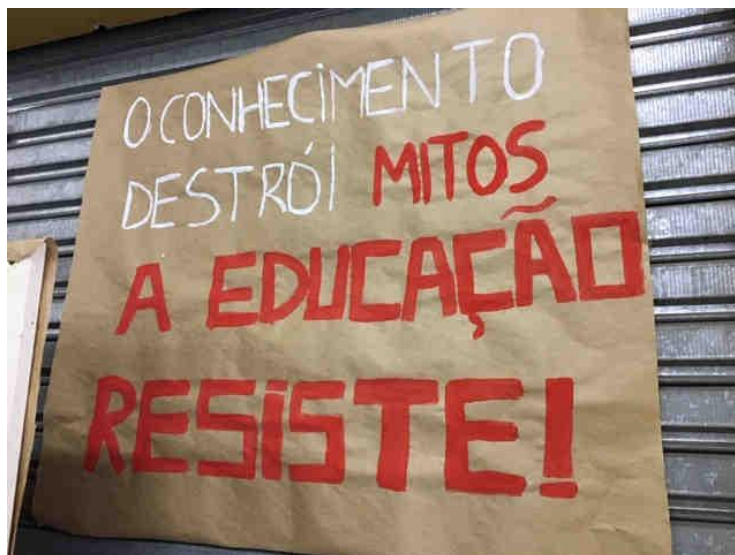 O CONHECIMENTO
DESTRÓI MITOS
A EDUCAÇÃO
RESISTE!